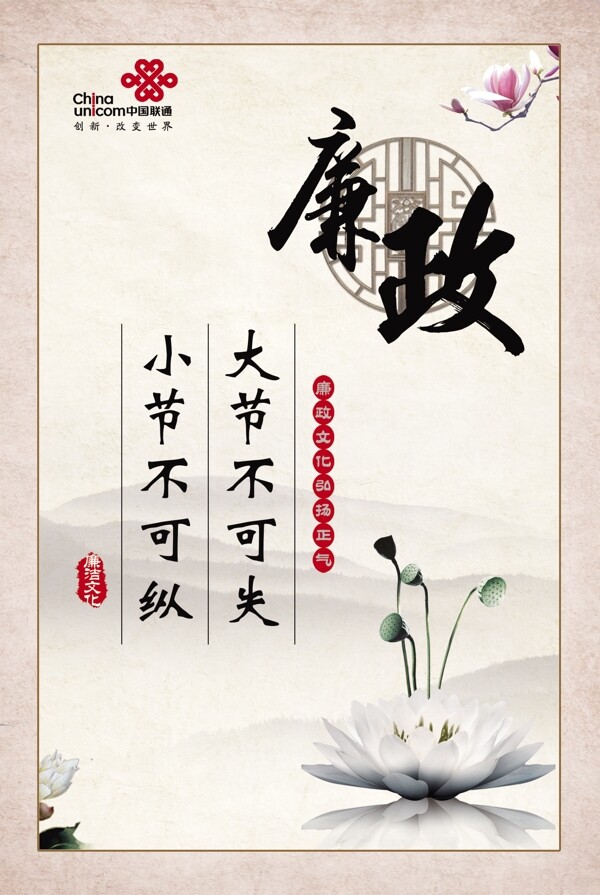 China
unicom中国联通
创新·改变世界
廉政
廉政文化弘扬正气
大节不可失
小节不可纵
廉洁文化